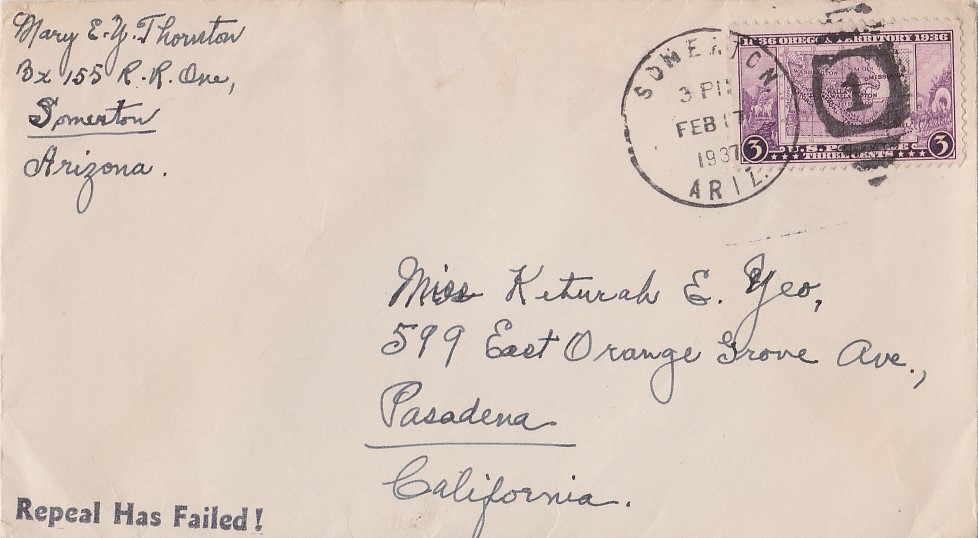 Mary E. Y. Thornton
Bx 155 R. R. One,
Somerton
Arizona.
SOMERTON
3 PM
FEB 17
1937
ARIZ.
1
1836 OREGON TERRITORY 1936
3 U.S. POSTAGE 3
THREE CENTS
Miss Keturah E. Yeo,
599 East Orange Grove Ave.,
Pasadena
California.
Repeal Has Failed!